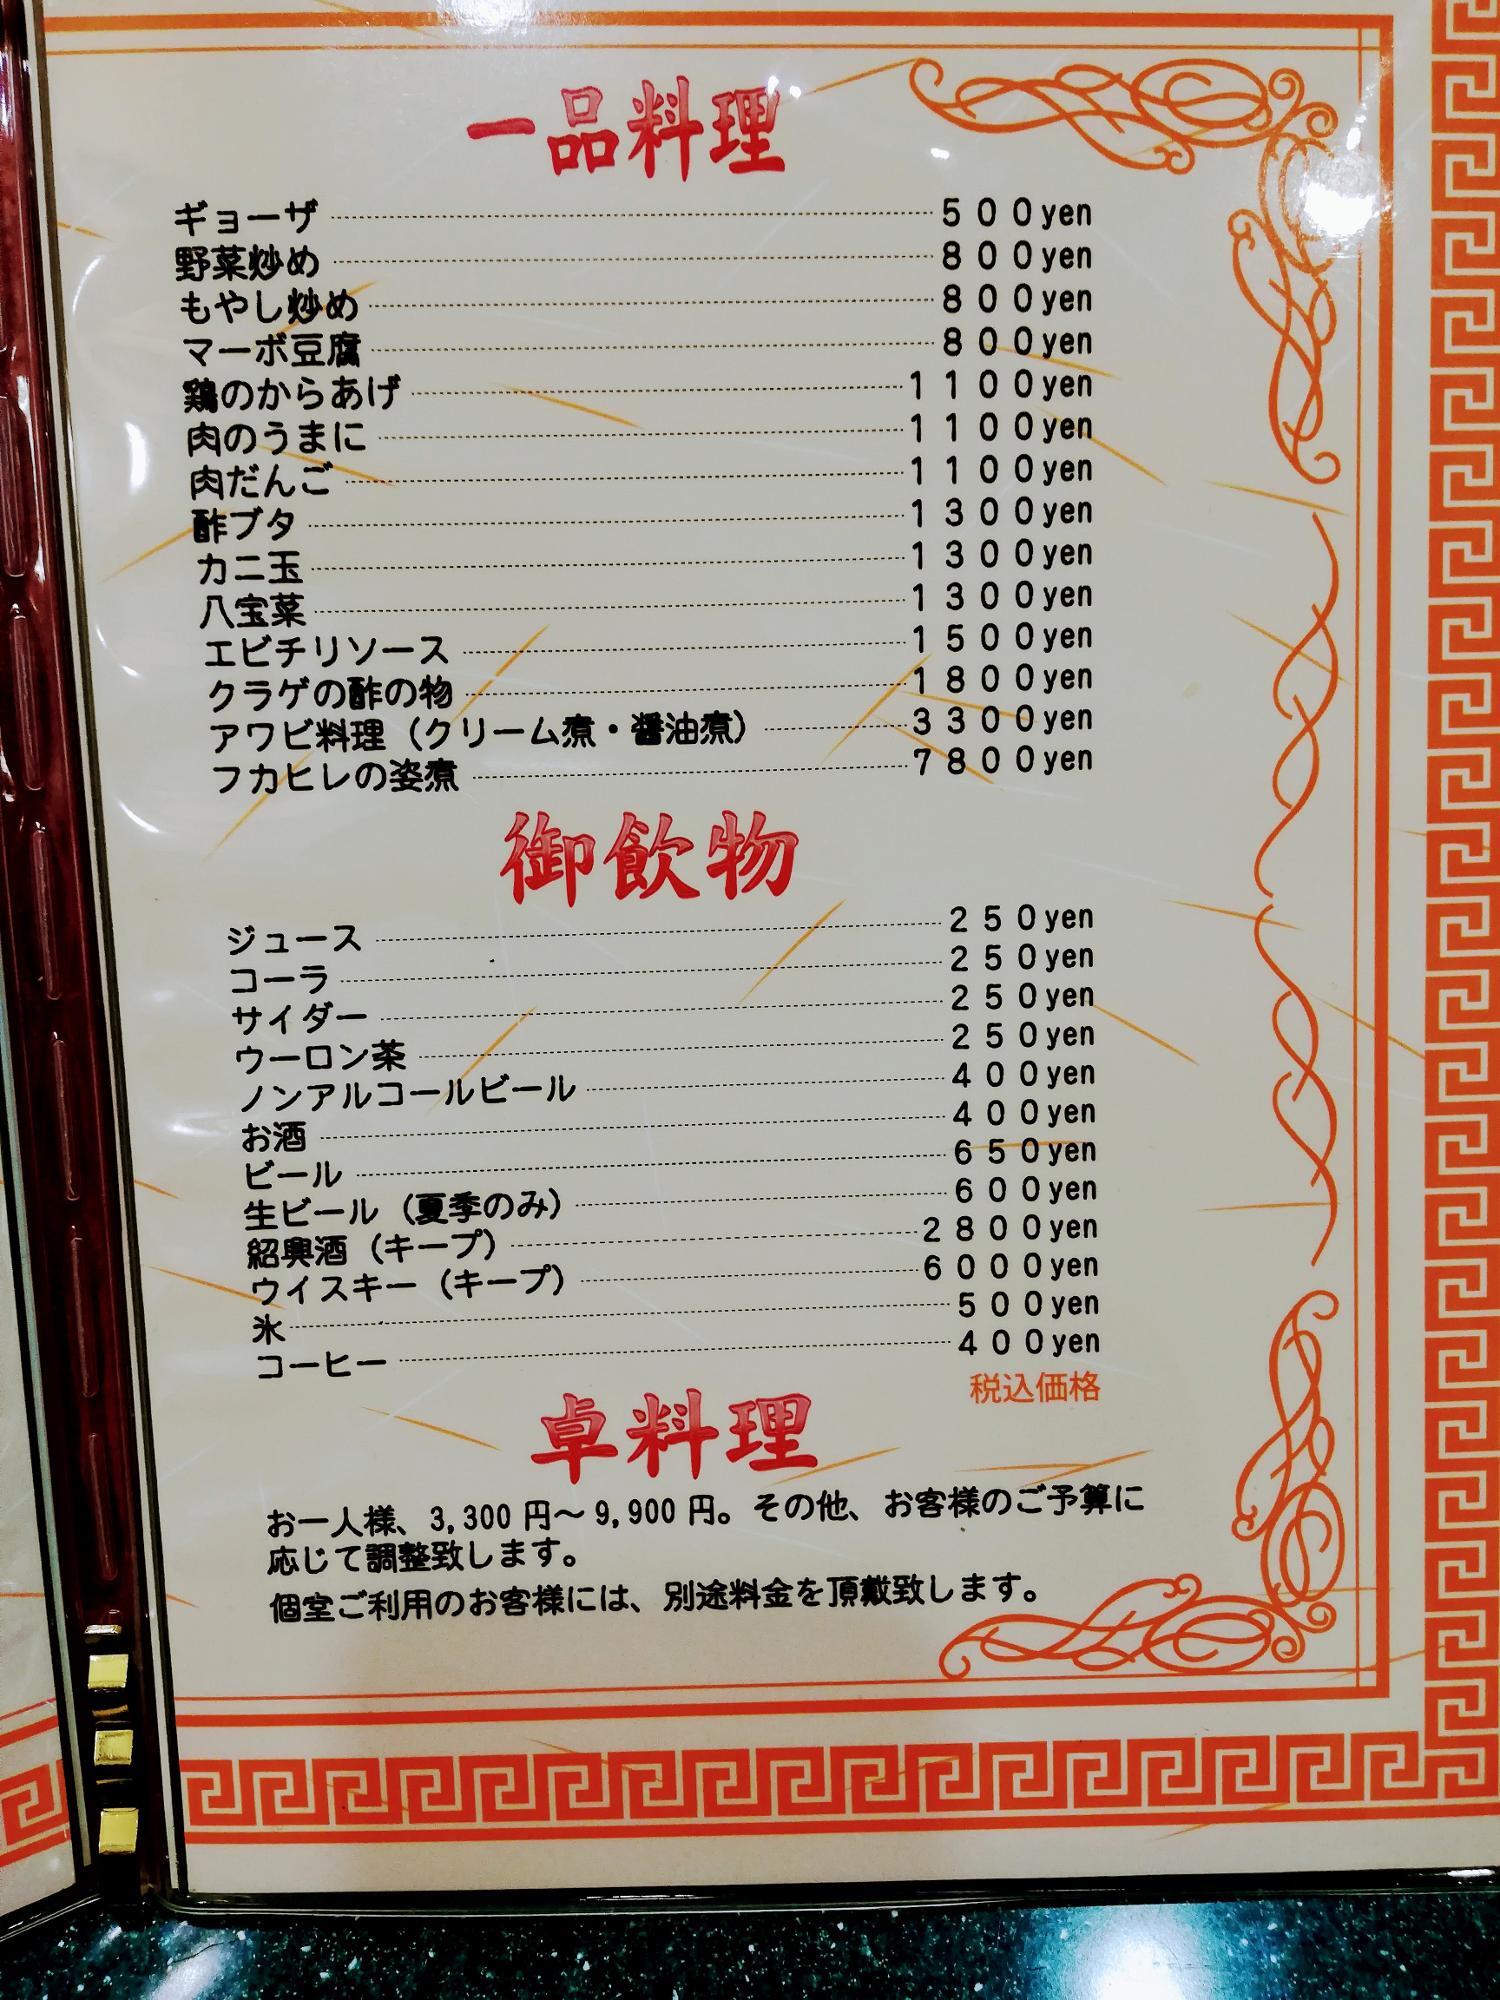 一品料理
ギョーザ 500yen
野菜炒め 800yen
もやし炒め 800yen
マーボ豆腐 800yen
鶏のからあげ 1100yen
肉のうまに 1100yen
肉だんご 1100yen
酢ブタ 1300yen
カニ玉 1300yen
八宝菜 1300yen
エビチリソース 1500yen
クラゲの酢の物 1800yen
アワビ料理（クリーム煮・醤油煮） 3300yen
フカヒレの姿煮 7800yen
御飲物
ジュース 250yen
コーラ 250yen
サイダー 250yen
ウーロン茶 250yen
ノンアルコールビール 400yen
お酒 400yen
ビール 650yen
生ビール（夏季のみ） 600yen
紹興酒（キープ） 2800yen
ウイスキー（キープ） 6000yen
氷 500yen
コーヒー 400yen
税込価格
卓料理
お一人様、3,300円～9,900円。その他、お客様のご予算に
応じて調整致します。
個室ご利用のお客様には、別途料金を頂戴致します。